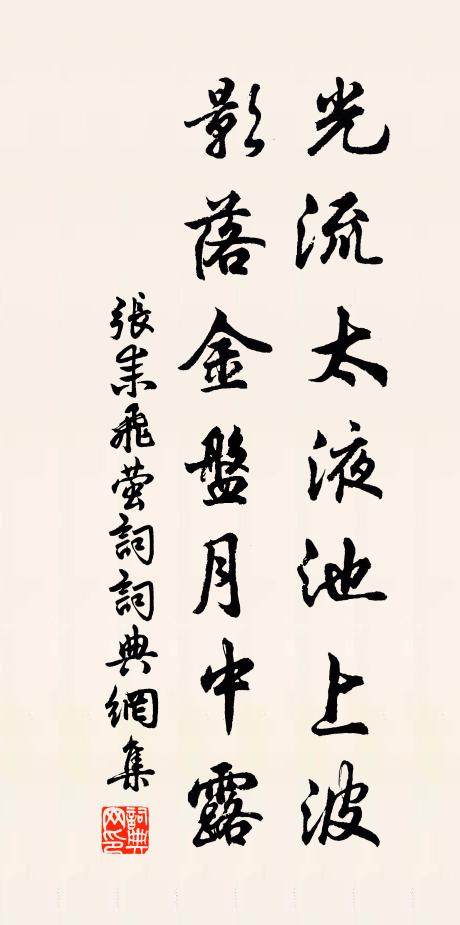 光流太液池上波
影落金盤月中露
張耒飛萤詞詞典網集
詞典网印